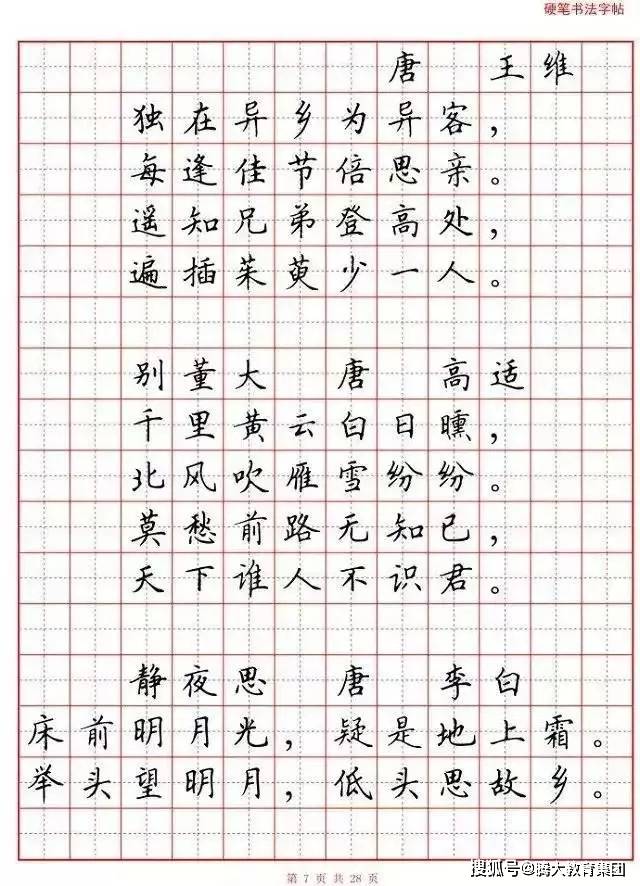 硬笔书法字帖
唐 王维
独在异乡为异客，
每逢佳节倍思亲。
遥知兄弟登高处，
遍插茱萸少一人。
别董大 唐 高适
千里黄云白日曛，
北风吹雁雪纷纷。
莫愁前路无知已，
天下谁人不识君。
静夜思 唐 李白
床前明月光，疑是地上霜。
举头望明月，低头思故乡。
第 7 页 共 28 页
搜狐号@腾大教育集团